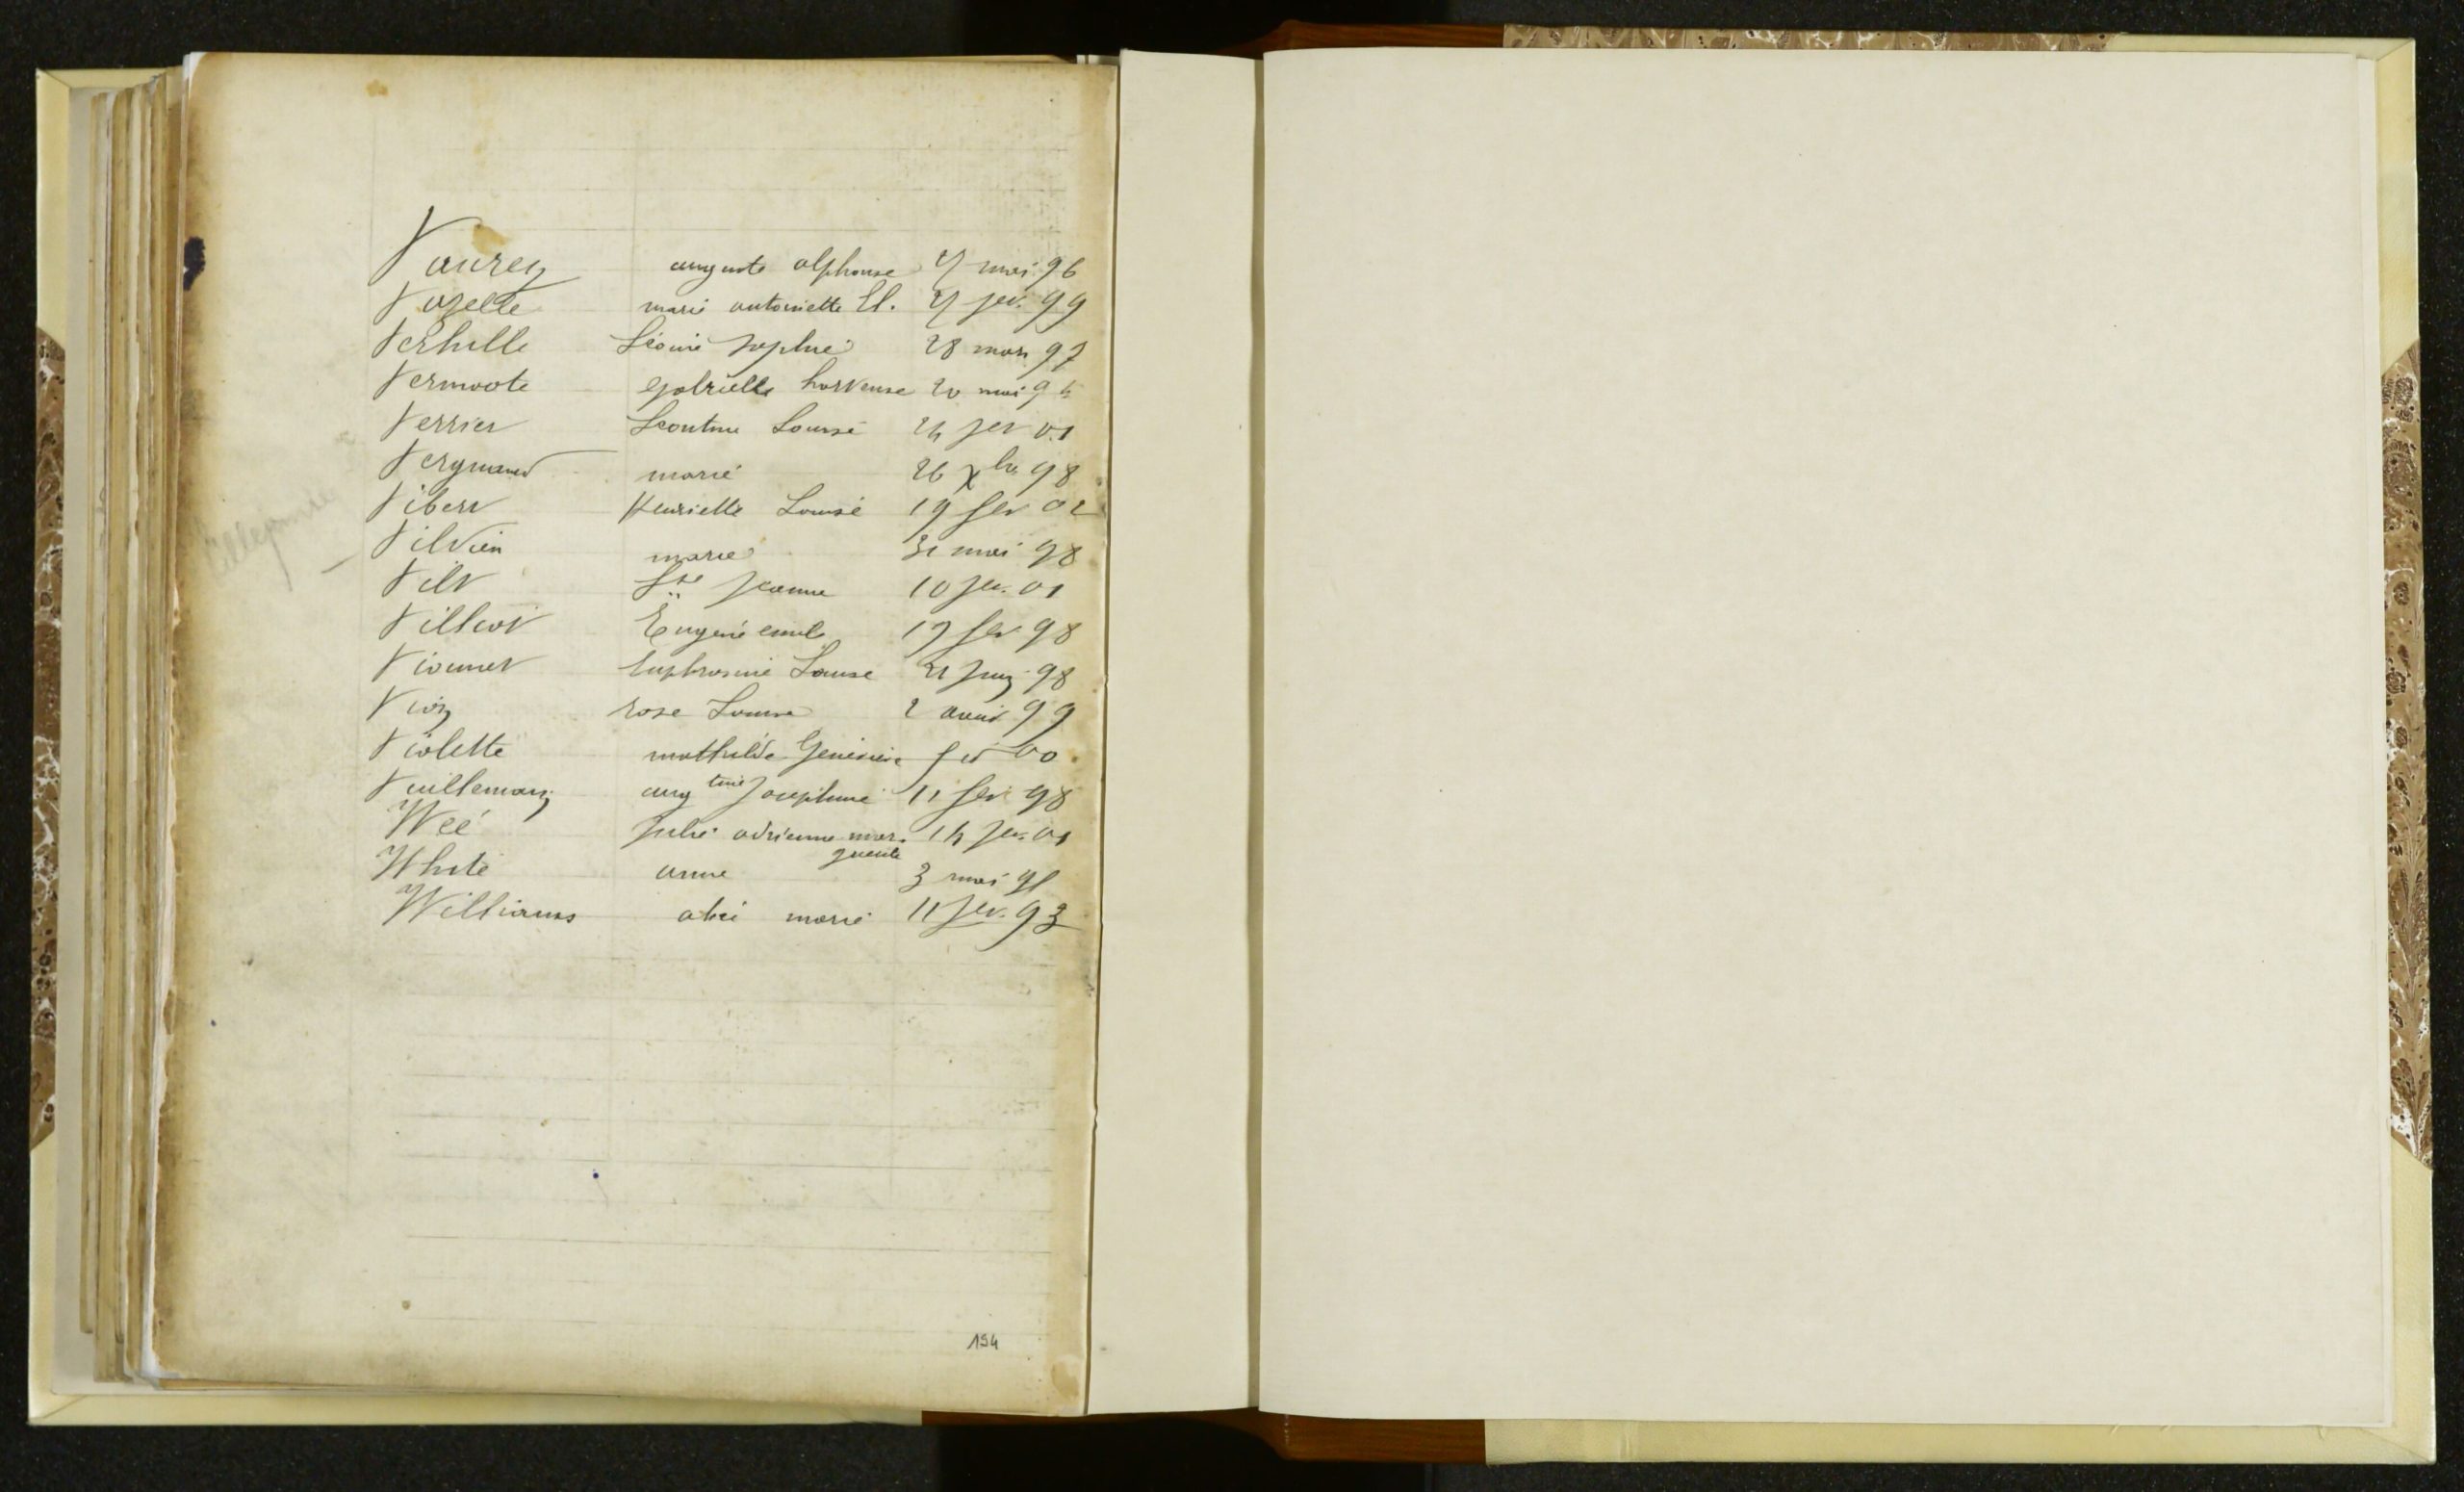 Vaurey auguste alphonse 27 mai 96
Vozelle marie antoinette El. 27 jer. 99
Verhille Léonie Sophie 28 mars 97
Vermoote gabrielle hortense 20 mai 95
Verrier Léontine Louise 24 01
marie 26 Xbre 98
Vibert Henriette Louise 19 fev 02
Vilvien marie 31 mai 98
Vilt Jeanne 10 01
Eugénie emile 17 fev 98
Vionnet Euphrosine Louise 21 98
Vion rose Louise 2 99
Violette mathilde Geneviève 00
Vuillemarz augtine Joséphine 11 fev 98
Weé Julie adrienne mar- 14 01
guerite
White anne 3 mai 91
Williams alice marie 11 93
154